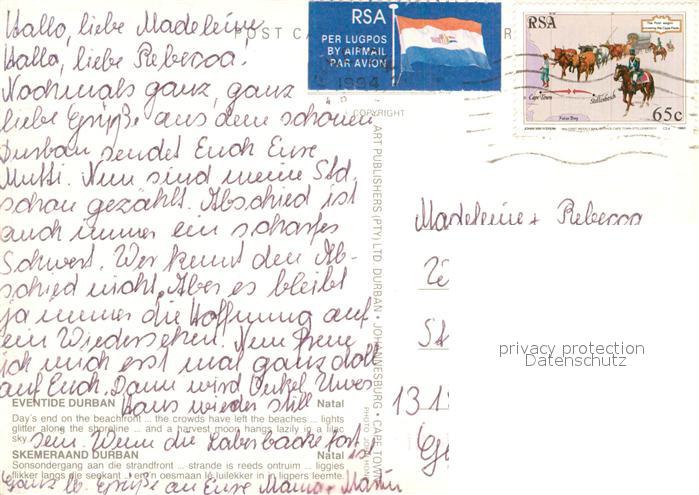 Hallo, liebe Madeleine,
Hallo, liebe Rebecca.
Nochmals ganz, ganz
liebe Grüße aus dem schönen
Durban sendet Euch Eure
Mutti. Nun sind meine Std.
schon gezählt. Abschied ist
auch immer ein scharfes
Schwert. Wer kennt den Ab-
schied nicht. Aber es bleibt
ja immer die Hoffnung auf
ein Wiedersehen. Nun freue
ich mich erst mal ganz doll
auf Euch. Dann wird Onkel
Hans wieder still
sein. Wenn die Laberbacke fort ist
Ganz lb. Grüße an Eure Mama + Martin
POST CA
RSA
PER LUGPOS
BY AIRMAIL
PAR AVION
1994
COPYRIGHT
ART PUBLISHERS (PTY) LTD. DURBAN • JOHANNESBURG • CAPE TOWN
EVENTIDE DURBAN Natal
Day's end on the beachfront ... the crowds have left the beaches ... lights
glitter along the shoreline ... and a harvest moon hangs lazily in a lilac
sky.
SKEMERAAND DURBAN Natal
Sonsondergang aan die strandfront ... strande is reeds ontruim ... liggies
flikker langs die seekant ... en 'n oesmaan lê luilekker in in ligpers leemte.
RSA
The first wagon
crossing the Cape Flats
Cape Town
Stellenbosch
False Bay
65c
Madeleine + Rebecca
St
13 1
privacy protection
Datenschutz